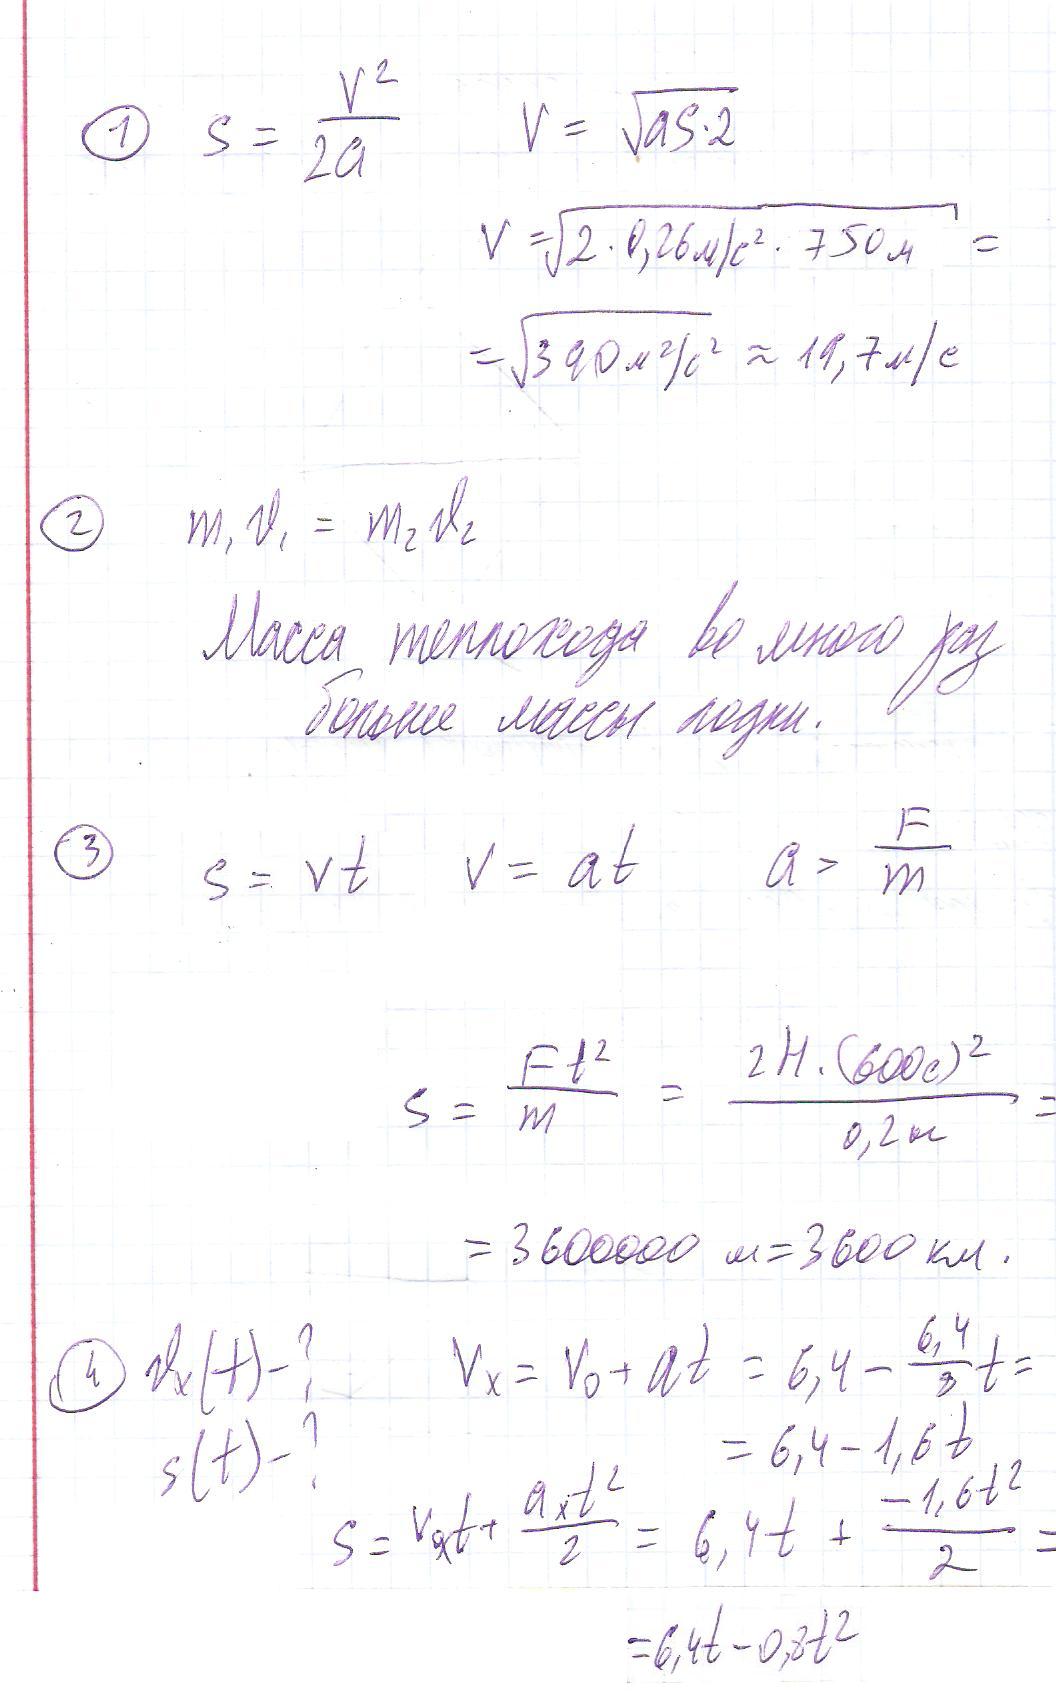 ① S = V²/2a V = √aS·2
V = √2·0,26м/с²·750м =
= √390м²/с² ≈ 19,7м/с
② m₁v₁ = m₂v₂
Масса теплохода во много раз
больше массы лодки.
③ S = Vt V = at a = F/m
S = Ft²/m = 2Н·(600с)²/0,2кг =
= 3600000 м = 3600 км.
④ vₓ(t) - ? Vₓ = V₀ + at = 6,4 - 6,4/3 t =
s(t) - ? = 6,4 - 1,6t
S = V₀ₓt + aₓt²/2 = 6,4t + -1,6t²/2 =
= 6,4t - 0,8t²